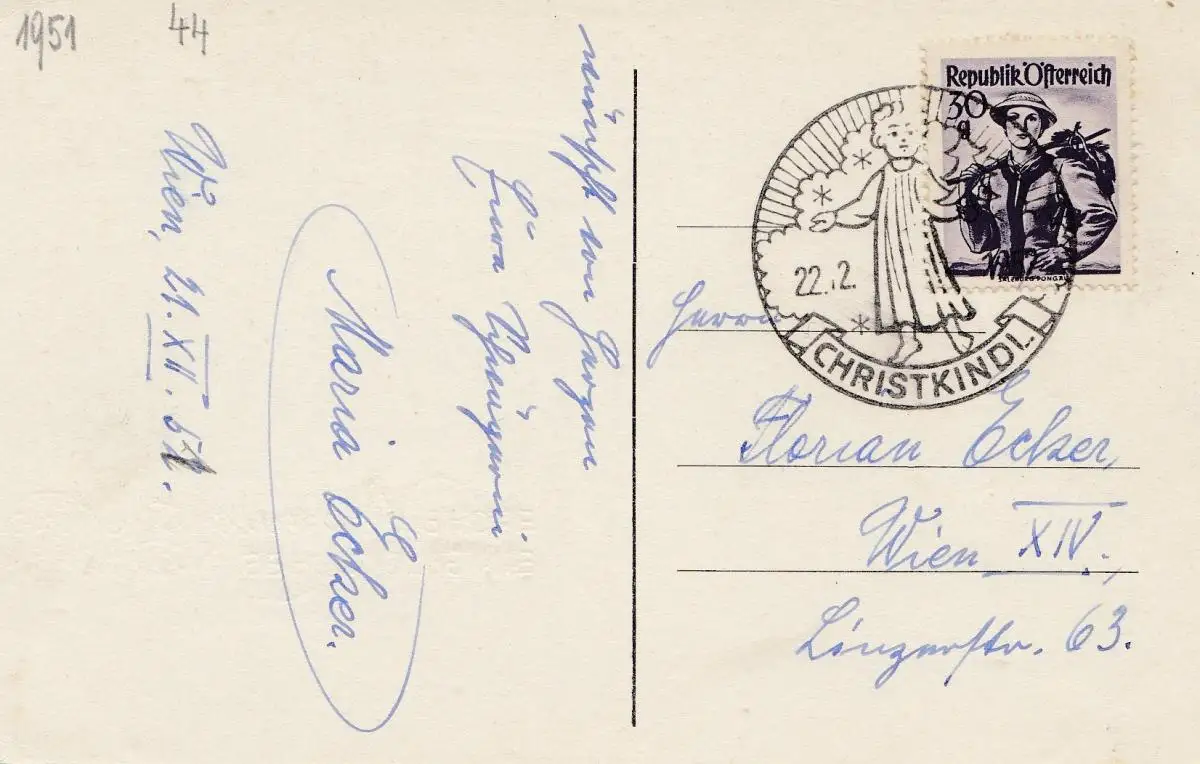 1951
44
wünscht von Herzen
Eure
Maria Ecker.
Wien, 21. XII. 51.
Republik Österreich
30
g
22.12.
CHRISTKINDL
Herrn
Florian Ecker,
Wien XIV.,
Linzerstr. 63.